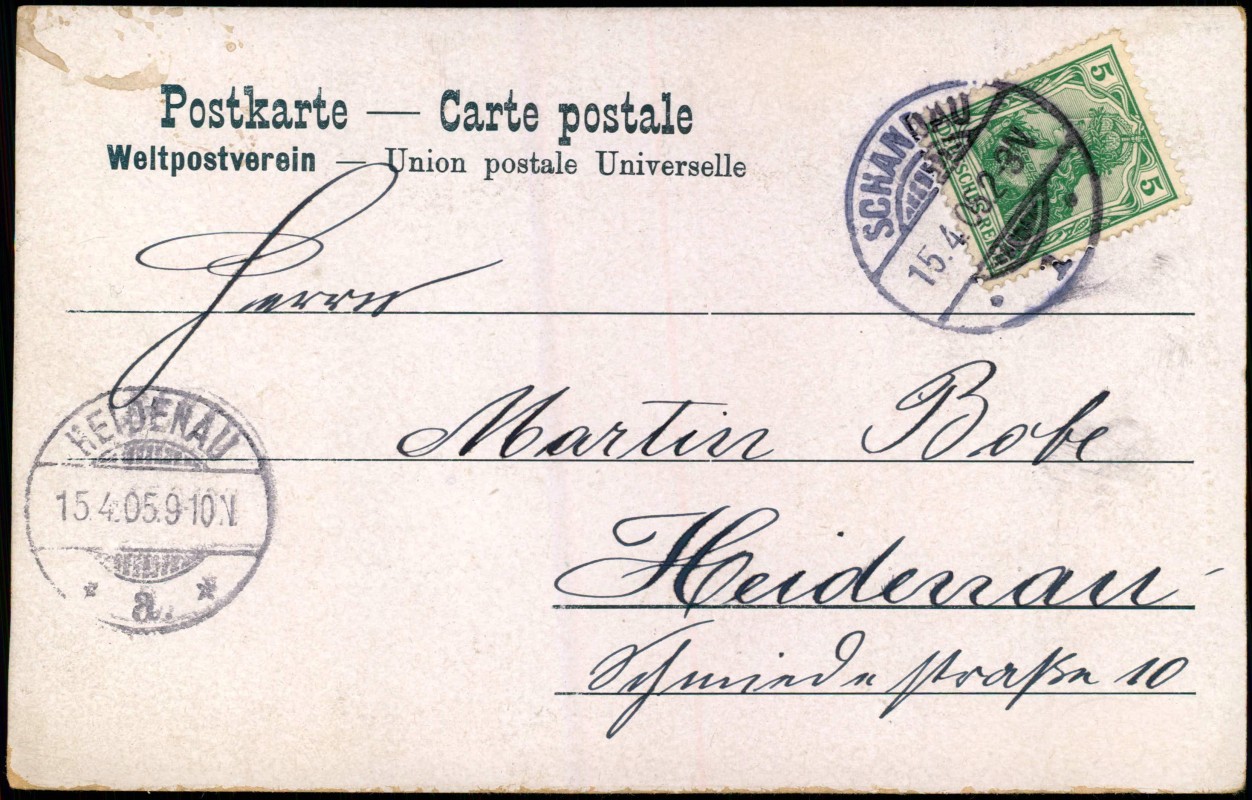 Postkarte — Carte postale
Weltpostverein — Union postale Universelle
5
5
SCHANDAU
15.4.05.2-3N
Herrn
Martin Bobe
HEIDENAU
15.4.05.9-10N
a.
Heidenau
Schmiedestraße 10